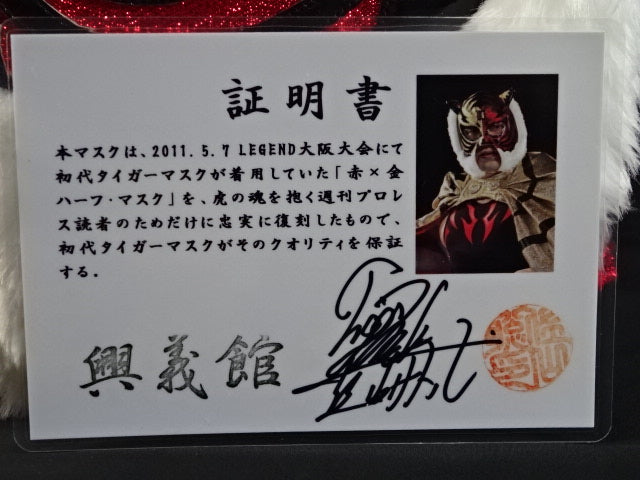 証明書
本マスクは、2011.5.7 LEGEND大阪大会にて
初代タイガーマスクが着用していた「赤×金
ハーフ・マスク」を、虎の魂を抱く週刊プロレ
ス読者のためだけに忠実に復刻したもので、
初代タイガーマスクがそのクオリティを保証
する.
興義館